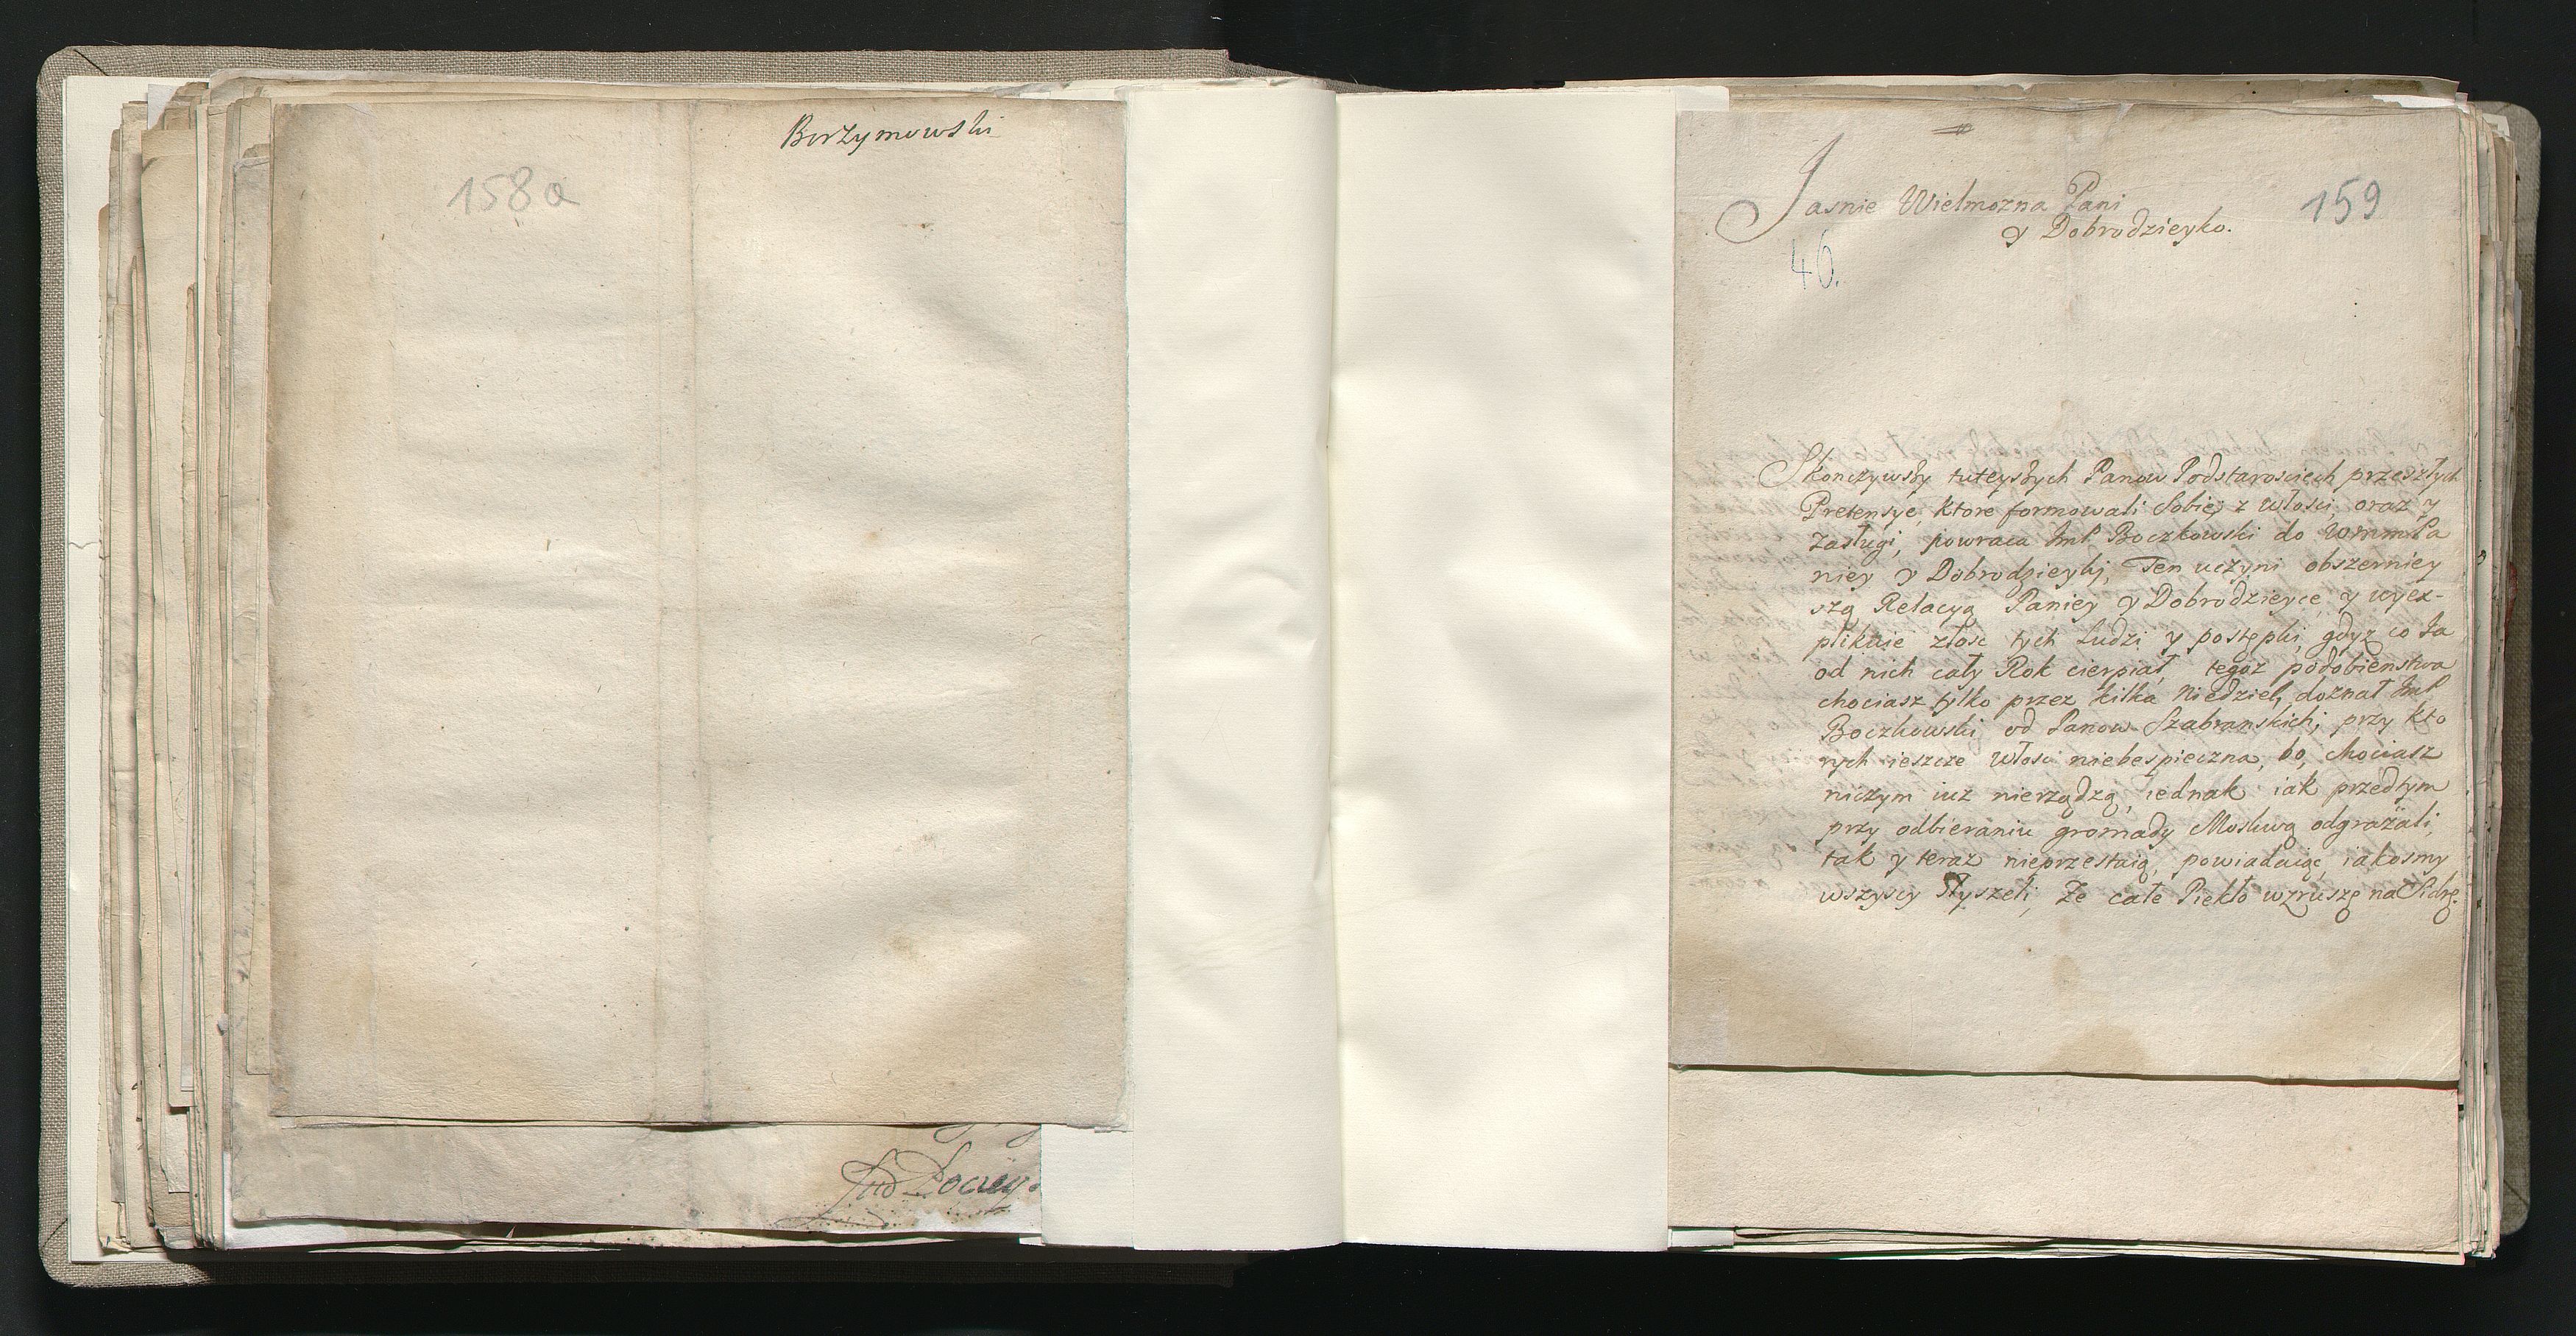 Borzymowski
158a
Jud Pociey
159
Jasnie Wielmozna Pani
y Dobrodzieyko.
46.
Skonczywszy tuteyszych Panow Podstarosciech przeszłych
Pretensye, ktore formowali Sobię z włosci, oraz y
zasługi, powraca ImP Boczkowski do
niey y Dobrodzieyki, Ten uczyni obszerniey
szą Relacyą Paniey y Dobrodzieyce, y wyex-
plikuie złosc tych Ludzi y postępki, gdyz co Ia
od nich cały Rok cierpiał, tegoz podobienstwa
chociasz tylko przez kilka Niedziel, doznał ImP
Boczkowski od Panow Szabranskich, przy kto
rych ieszcze Włosc niebespieczna, bo, chociasz
niczym iuz nierządzą, iednak iak przedtym
przy odbieraniu gromady Moskwą odgrazali,
tak y teraz nieprzestaią, powiadaiąc, iakosmy
wszyscy słyszeli, Ze całe Piekło wzruszę na